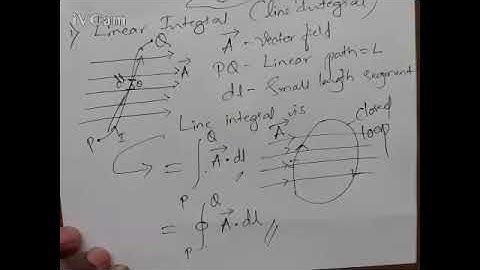 iVCam
1) Linear Integral (Line Integral)
Q
A⃗ - Vector field
A⃗
PQ - Linear path = L
dl - Small length segment
dl θ
P
Line integral is
A⃗
closed loop
= ∫ A⃗ · dl
P Q
= ∮ A⃗ · dl
P Q